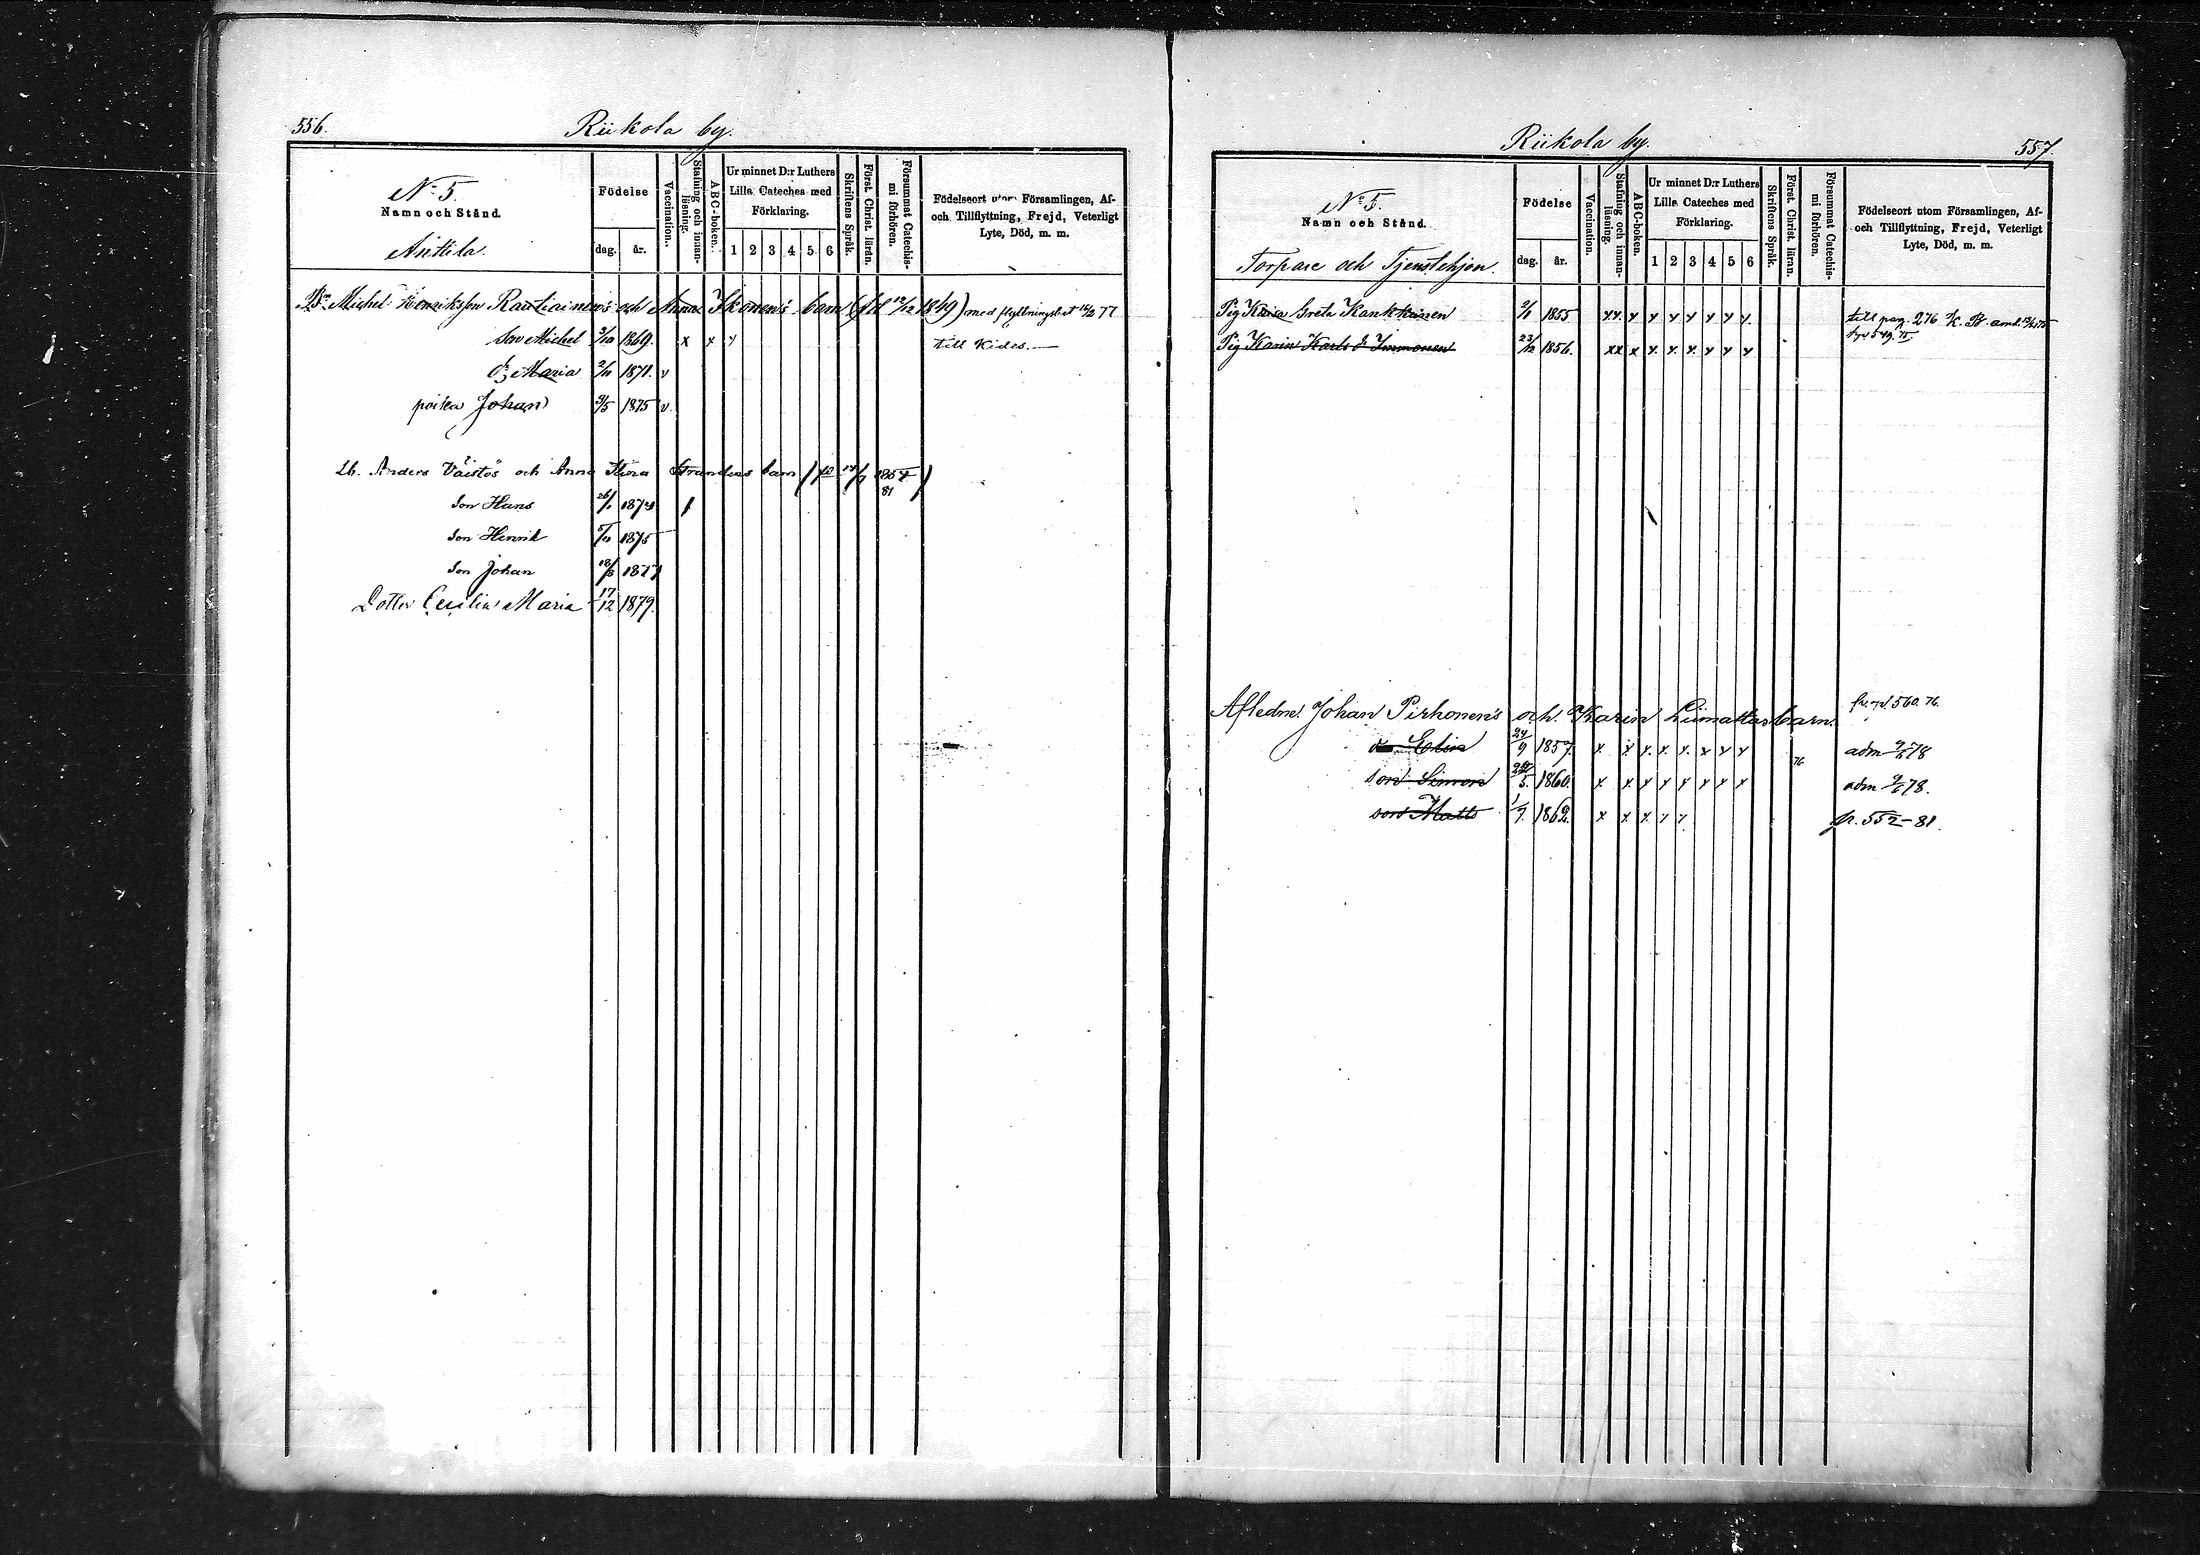 556.
Riikola by.
No 5.
Namn och Stånd.
Anttila.
Födelse
dag. år.
Vaccination.
Stafning och innan-läsning.
ABC-boken.
Ur minnet D:r Luthers
Lilla Cateches med
Förklaring.
1 2 3 4 5 6
Skriftens Språk.
Först. Christ. lärdn.
Försummat Catechis-
mi förhören.
Födelseort utom Församlingen, Af-
och Tillflyttning, Frejd, Veterligt
Lyte, Död, m. m.
Michel Henriksson Rautiainen's och Anna Ikonen's barn 12/12 1849) med flyttningsbet 77
Son Michel 3/10 1869. x x y till Kides.
Dr Maria 2/11 1871. v
poika Johan 9/5 1875 v.
Lb. Anders Väistös och Anna Stina Stranders barn
81
Son Hans 26/1 1874
Son Henrik 1875
Son Johan 18/8 1877
Dotter Cecilia Maria 17/12 1879.
Riikola by.
557.
No 5.
Namn och Stånd.
Torpare och Tjenstehjon.
Födelse
dag. år.
Vaccination.
Stafning och innan-läsning.
ABC-boken.
Ur minnet D:r Luthers
Lilla Cateches med
Förklaring.
1 2 3 4 5 6
Skriftens Språk.
Först. Christ. läran.
Försummat Catechis-
mi förhören.
Födelseort utom Församlingen, Af-
och Tillflyttning, Frejd, Veterligt
Lyte, Död, m. m.
Pig Karin Greta Kankkunen 2/1 1855 xx. y y y y y y y. till pag. 276 K.
Pig Karin Karls d. Immonen 23/12 1856. xx x y. y. y. y y y
Afledne Johan Pirhonen's och Karin Liimattas barn. 560. 76.
d. Elin 24/9 1857. x x y. x. y. x y y adm 9/6 78
76
son Simon 5. 1860. x x y y y y y y adm 9/6 78.
son Matts 1/9. 1862. x x x y y. fr. 552 - 81.